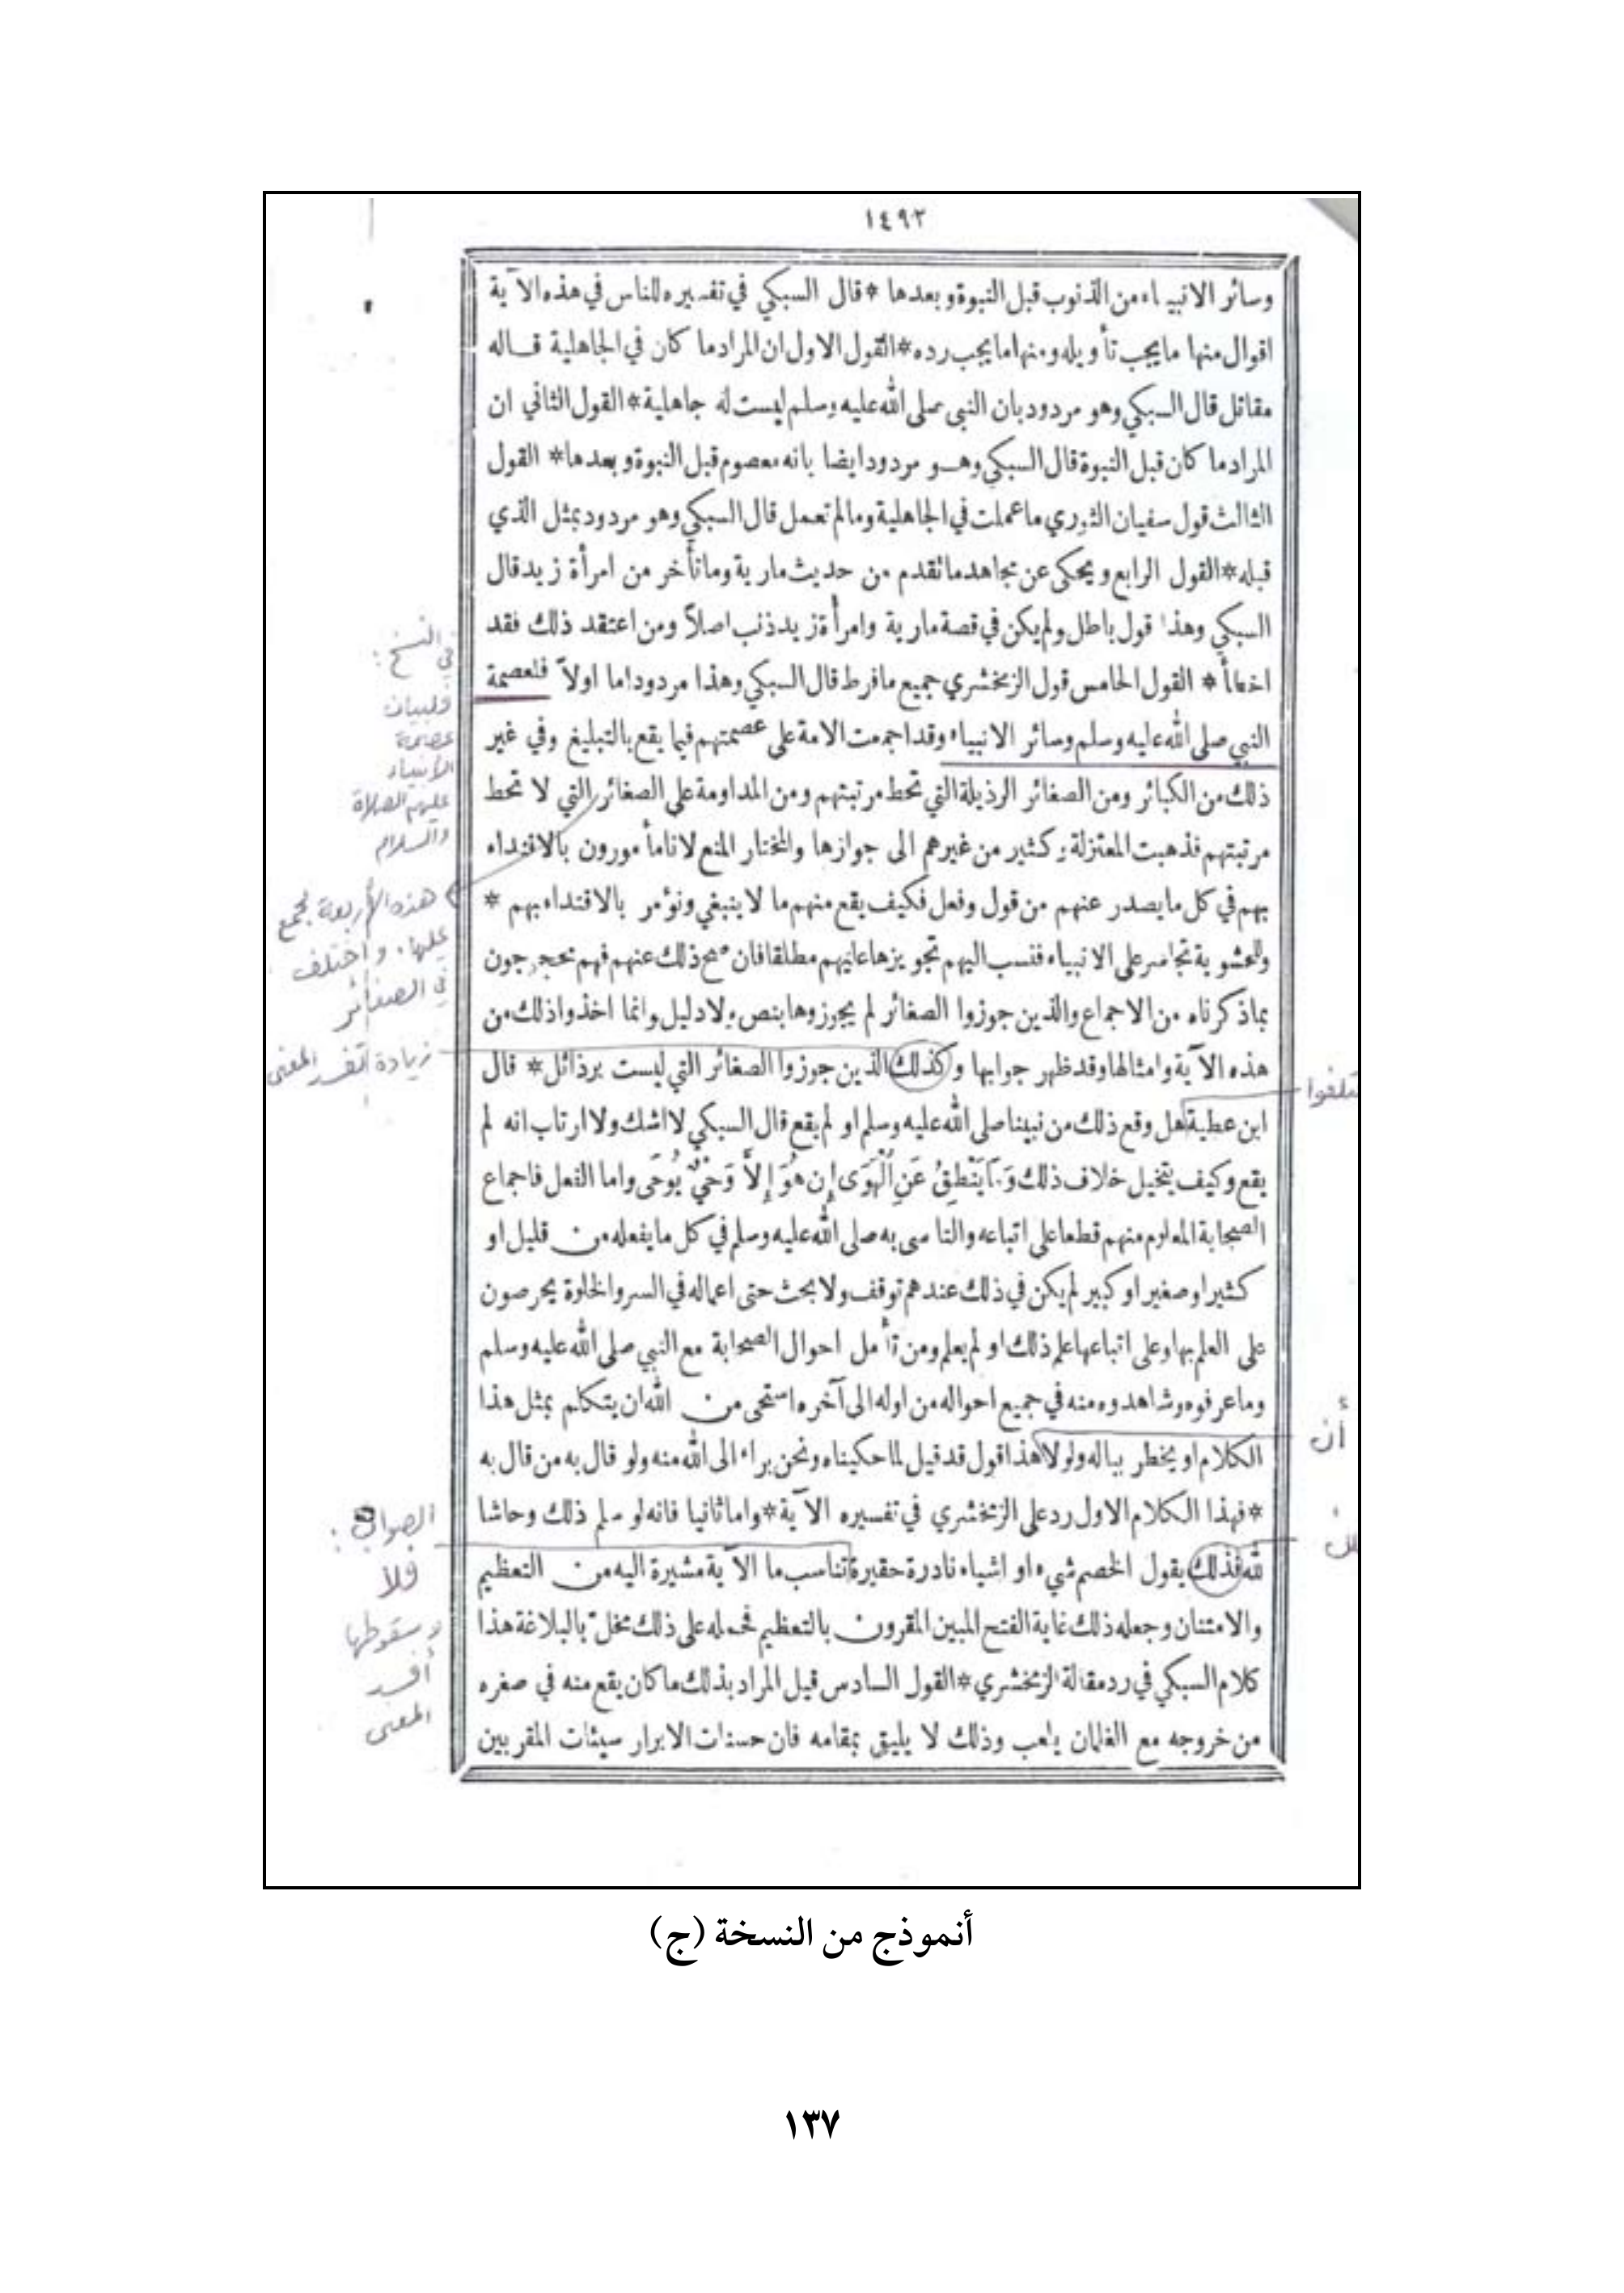 ١٤٩٢
وسائر الانبياء من الذنوب قبل النبوة وبعدها * قال السبكي في تفسيره للناس في هذه الآية
اقوال منها ما يجب تأويله ومنها ما يجب رده * القول الاول ان المراد ما كان في الجاهلية قاله
مقاتل قال السبكي وهو مردود بان النبي صلى الله عليه وسلم ليست له جاهلية * القول الثاني ان
المراد ما كان قبل النبوة قال السبكي وهو مردود ايضا بانه معصوم قبل النبوة وبعدها * القول
الثالث قول سفيان الثوري ما عملت في الجاهلية وما لم تعمل قال السبكي وهو مردود بمثل الذي
قبله * القول الرابع ويحكى عن مجاهد ما تقدم من حديث مارية وما تأخر من امرأة زيد قال
السبكي وهذا قول باطل ولم يكن في قصة مارية وامرأة زيد ذنب اصلاً ومن اعتقد ذلك فقد
اخطأ * القول الخامس قول الزمخشري جميع ما فرط قال السبكي وهذا مردود اما اولاً فلعصمة
النبي صلى الله عليه وسلم وسائر الانبياء وقد اجمعت الامة على عصمتهم فيما يقع بالتبليغ وفي غير
ذلك من الكبائر ومن الصغائر الرذيلة التي تحط مرتبتهم ومن المداومة على الصغائر التي لا تحط
مرتبتهم فذهبت المعتزلة وكثير من غيرهم الى جوازها والمختار المنع لانا مأمورون بالاقتداء
بهم في كل ما يصدر عنهم من قول وفعل فكيف يقع منهم ما لا ينبغي ونؤمر بالاقتداء بهم *
والحشوية تجاسر على الانبياء فنسب اليهم تجويزها عليهم مطلقا فان صح ذلك عنهم فهم محجوجون
بما ذكرناه من الاجماع والذين جوزوا الصغائر لم يجوزوها بنص ولا دليل وانما اخذوا ذلك من
هذه الآية وامثالها وقد ظهر جوابها وكذلك الذين جوزوا الصغائر التي ليست برذائل * قال
ابن عطية هل وقع ذلك من نبينا صلى الله عليه وسلم او لم يقع قال السبكي لا اشك ولا ارتاب انه لم
يقع وكيف يتخيل خلاف ذلك وَمَا يَنْطِقُ عَنِ الْهَوَى إِن هُوَ إِلاَّ وَحْيٌ يُوحَى واما الفعل فاجماع
الصحابة المعلوم منهم قطعا على اتباعه والتاسى به صلى الله عليه وسلم في كل ما يفعله من قليل او
كثير او صغير او كبير لم يكن في ذلك عندهم توقف ولا بحث حتى اعماله في السر والخلوة يحرصون
على العلم بها وعلى اتباعها علم ذلك او لم يعلم ومن تأمل احوال الصحابة مع النبي صلى الله عليه وسلم
وما عرفوه وشاهدوه منه في جميع احواله من اوله الى آخره استحى من الله ان يتكلم بمثل هذا
الكلام او يخطر بباله ولولا هذا قول قد قيل لما حكيناه ونحن براء الى الله منه ولو قال به من قال به
* فهذا الكلام الاول رد على الزمخشري في تفسيره الآية * واما ثانيا فانه لو سلم ذلك وحاشا
لله فذلك يقول الخصم شيء او اشياء نادرة حقيرة تناسب ما الآية مشيرة اليه من التعظيم
والامتنان وجعله ذلك غاية الفتح المبين المقرون بالتعظيم فحمله على ذلك مخل بالبلاغة هذا
كلام السبكي في رد مقالة الزمخشري * القول السادس قيل المراد بذلك ما كان يقع منه في صغره
من خروجه مع الغلمان يلعب وذلك لا يليق بمقامه فان حسنات الابرار سيئات المقربين
في النسخ :
فلبيان
عصمة
الأنبياء
عليهم الصلاة
والسلام
هذه الأربعة مجمع
عليها، واختلف
في الصغائر
زيادة تفسد المعنى
أن
الصواب :
فلا
وسقوطها
أفسد
المعنى
أنموذج من النسخة (ج)
١٣٧